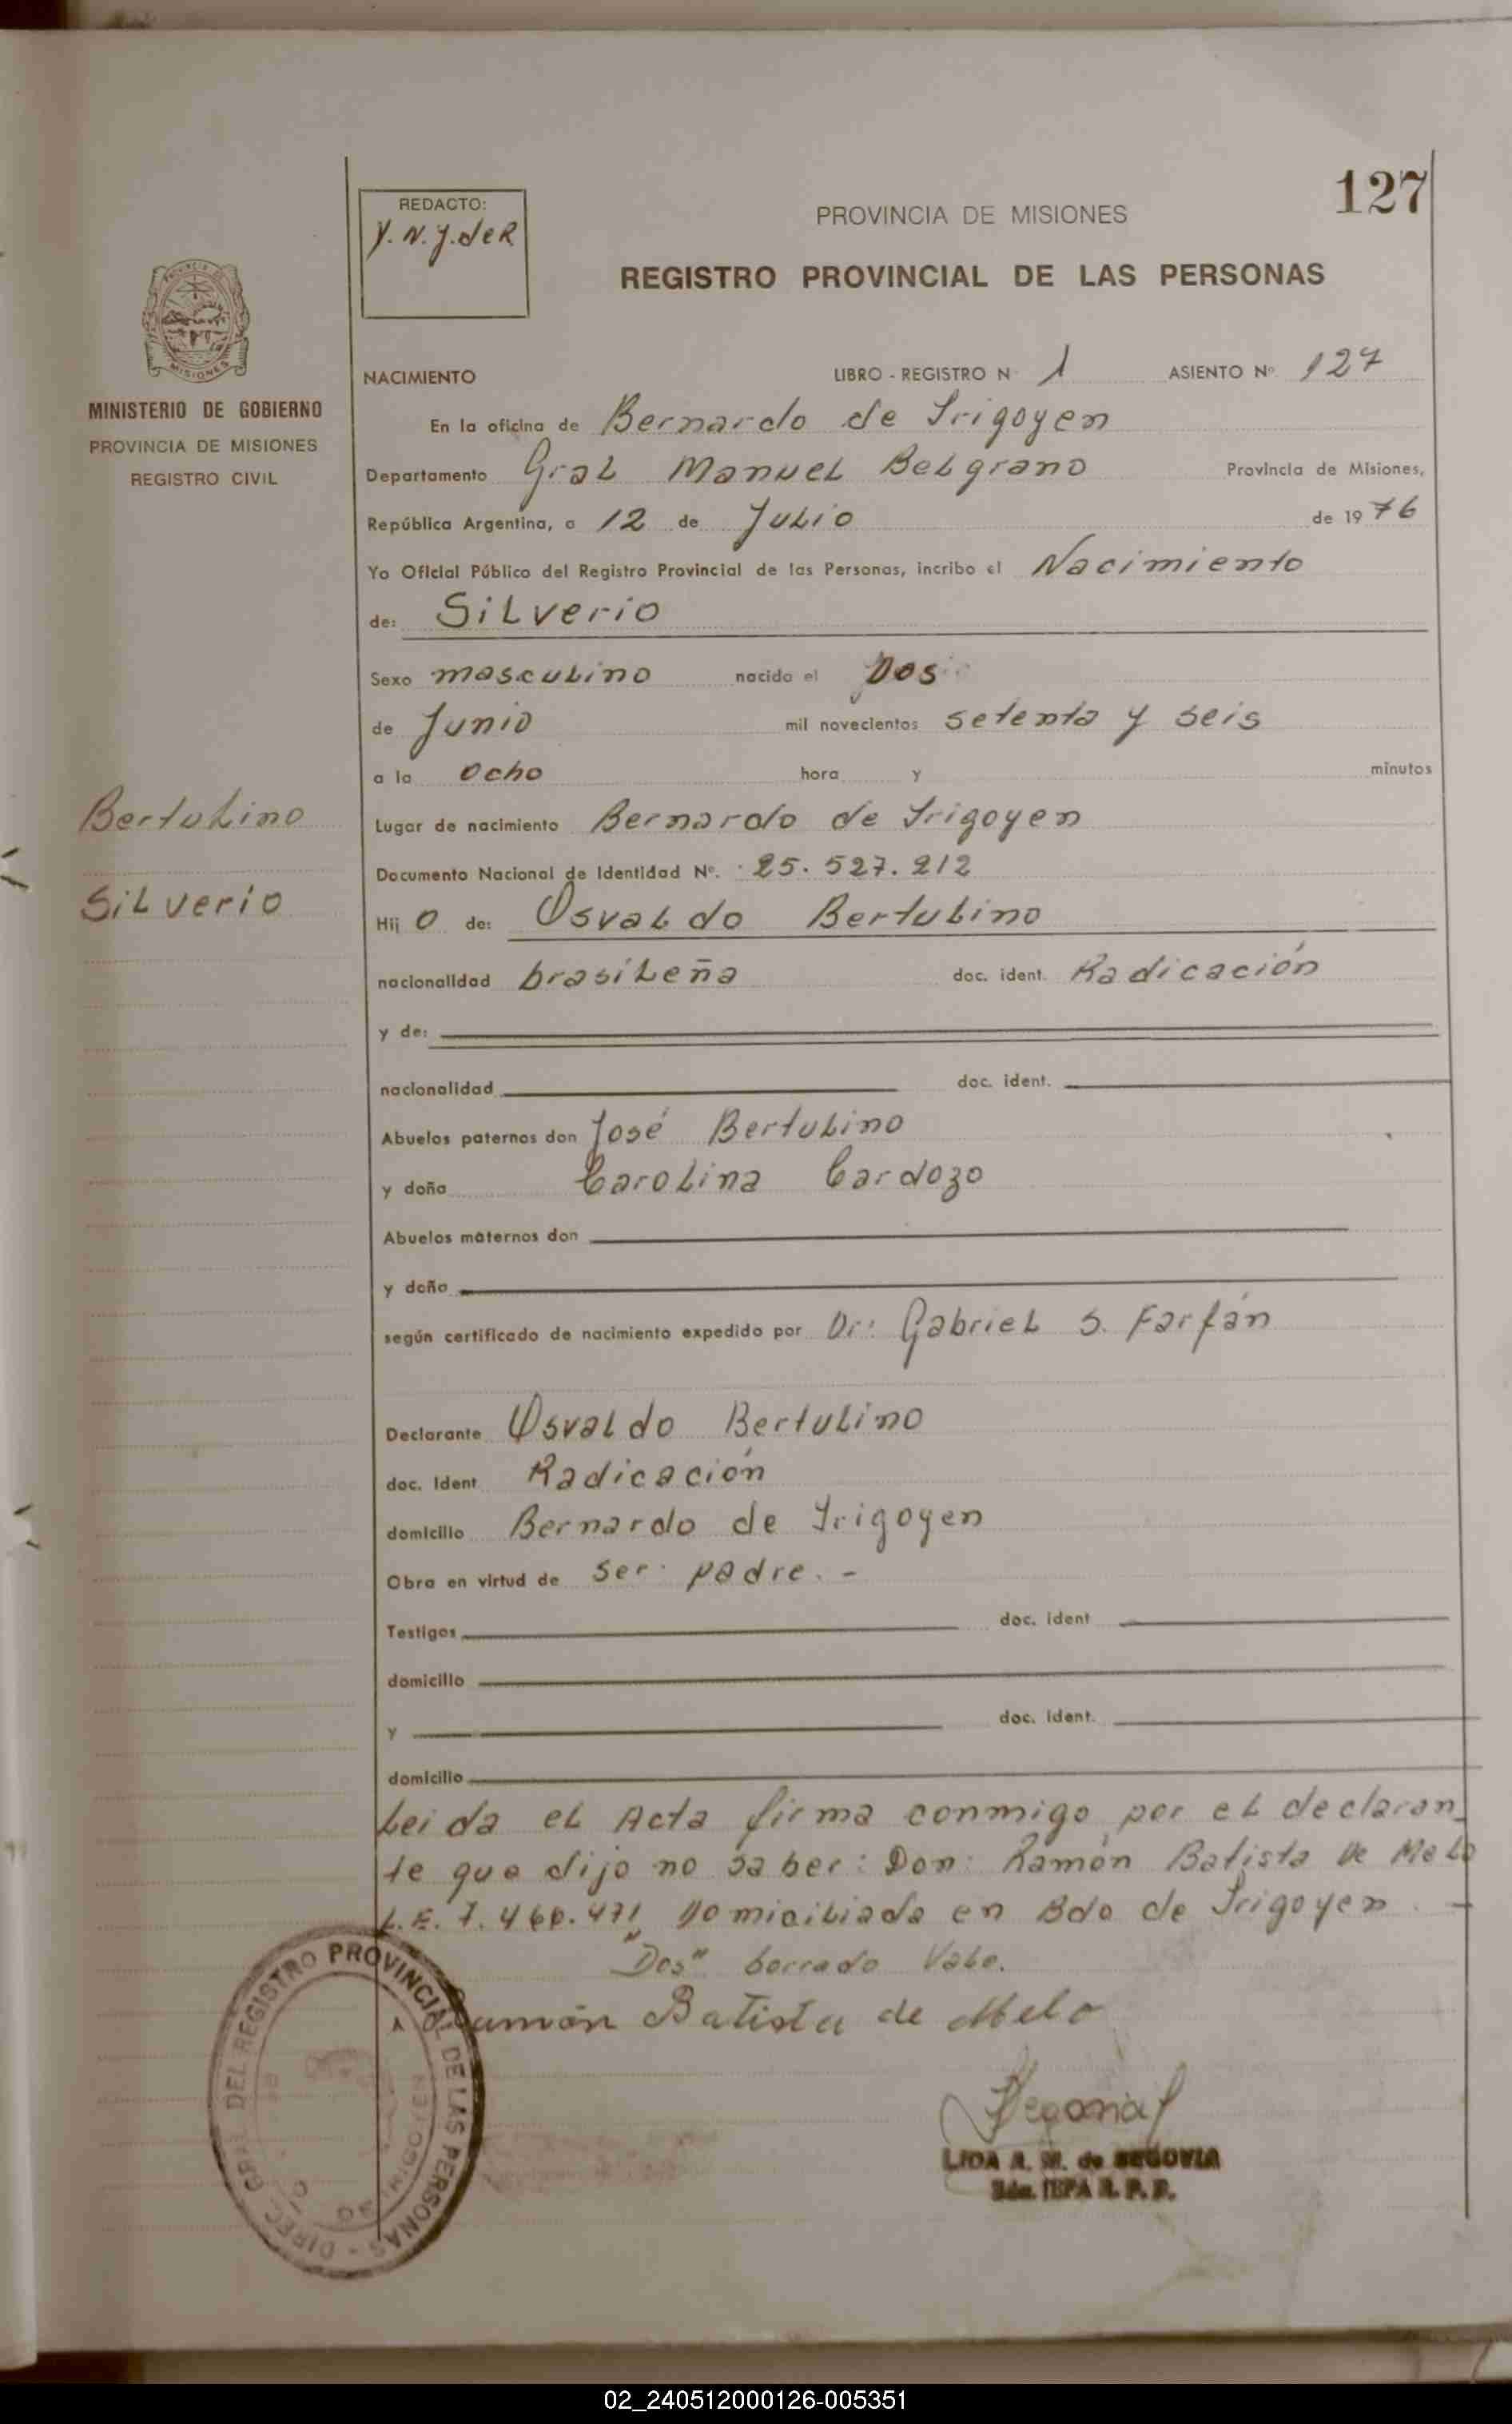 127
REDACTO:
Y. N. J. de R
PROVINCIA DE MISIONES
REGISTRO PROVINCIAL DE LAS PERSONAS
MISIONES
MINISTERIO DE GOBIERNO
PROVINCIA DE MISIONES
REGISTRO CIVIL
NACIMIENTO LIBRO - REGISTRO N 1 ASIENTO Nº 127
En la oficina de Bernardo de Irigoyen
Departamento Gral Manuel Belgrano Provincia de Misiones,
República Argentina, a 12 de Julio de 1976
Yo Oficial Público del Registro Provincial de las Personas, incribo el Nacimiento
de: Silverio
Sexo masculino nacido el Dos
de Junio mil novecientos setenta y seis
a la Ocho hora y minutos
Bertulino
Lugar de nacimiento Bernardo de Irigoyen
Documento Nacional de Identidad Nº. 25.527.212
Silverio
Hij o de: Osvaldo Bertulino
nacionalidad brasileña doc. ident. Radicación
y de:
nacionalidad doc. ident.
Abuelos paternos don José Bertulino
y doña Carolina Cardozo
Abuelos maternos don
y doña
según certificado de nacimiento expedido por Dr: Gabriel S. Farfán
Declarante Osvaldo Bertulino
doc. Ident Radicación
domicilio Bernardo de Irigoyen
Obra en virtud de ser padre. -
Testigos doc. ident
domicilio
y doc. ident.
domicilio
Leida el Acta firma conmigo por el declaran_
te que dijo no saber: Don: Ramón Batista De Melo
L.E. 7.460.471 Domiciliado en Bdo de Irigoyen. -
"Dos" borrado Vale.
Ramón Batista de Melo
DIREC GRAL DEL REGISTRO PROVINCIAL DE LAS PERSONAS -
LIDA A. M. de SEGOVIA
R. P. P.
02_240512000126-005351